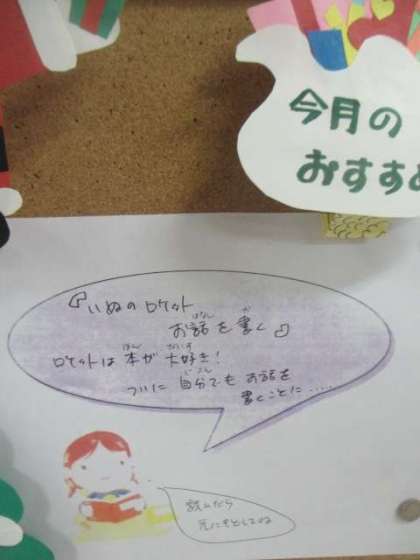 今月の
おすすめ
『いぬのロケット
お話を書く』
ロケットは本が大好き!
ついに自分でもお話を
書くことに.....
読んだら
元にもどしてね